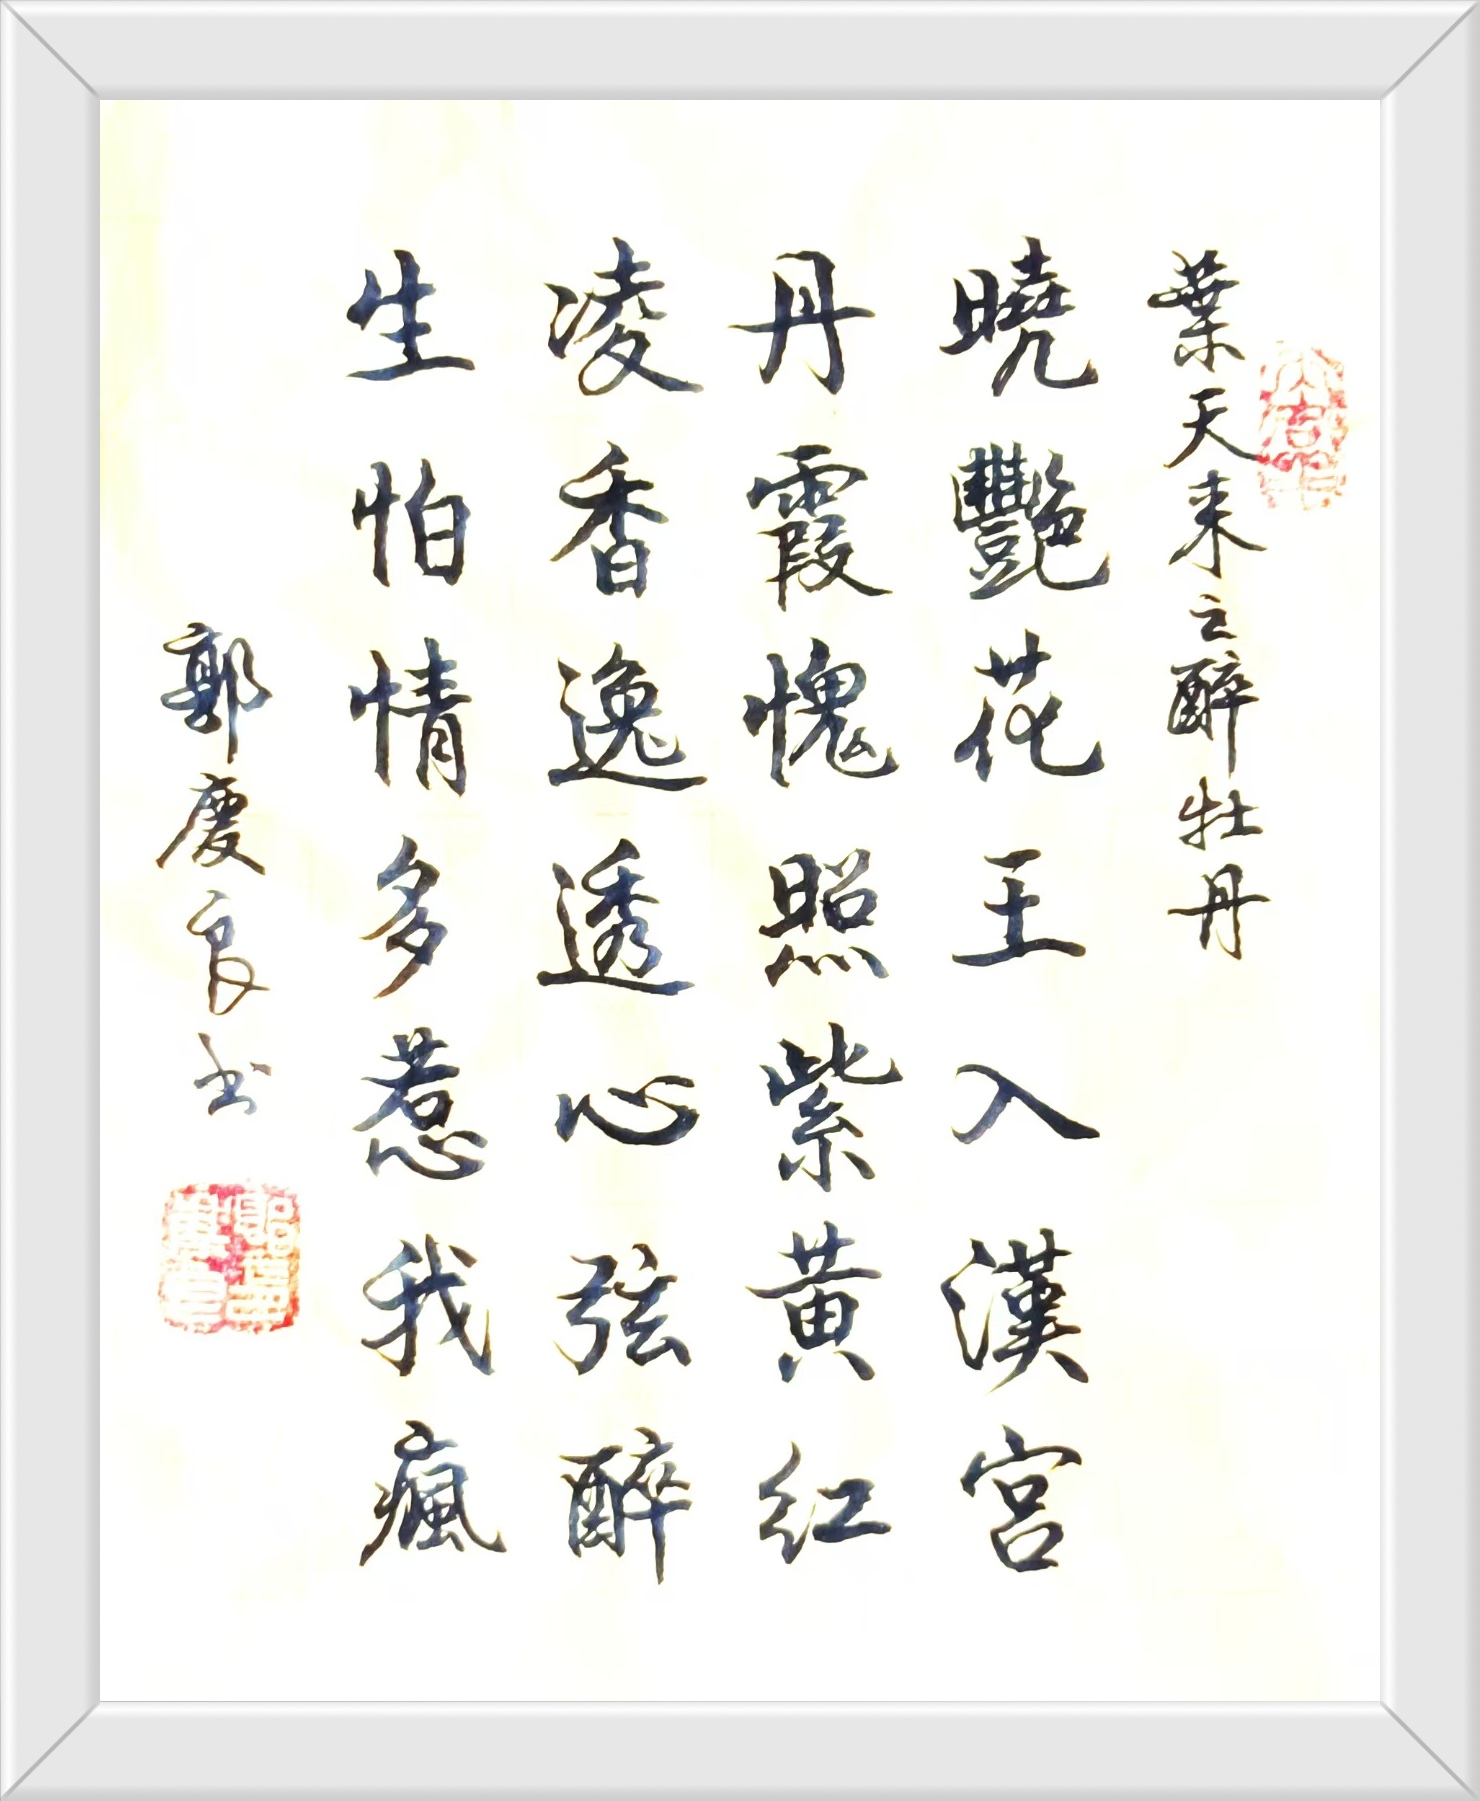 葉天来之醉牡丹
曉艷花王入漢宮
丹霞愧照紫黃红
凌香逸透心弦醉
生怕情多惹我瘋
郭慶良书